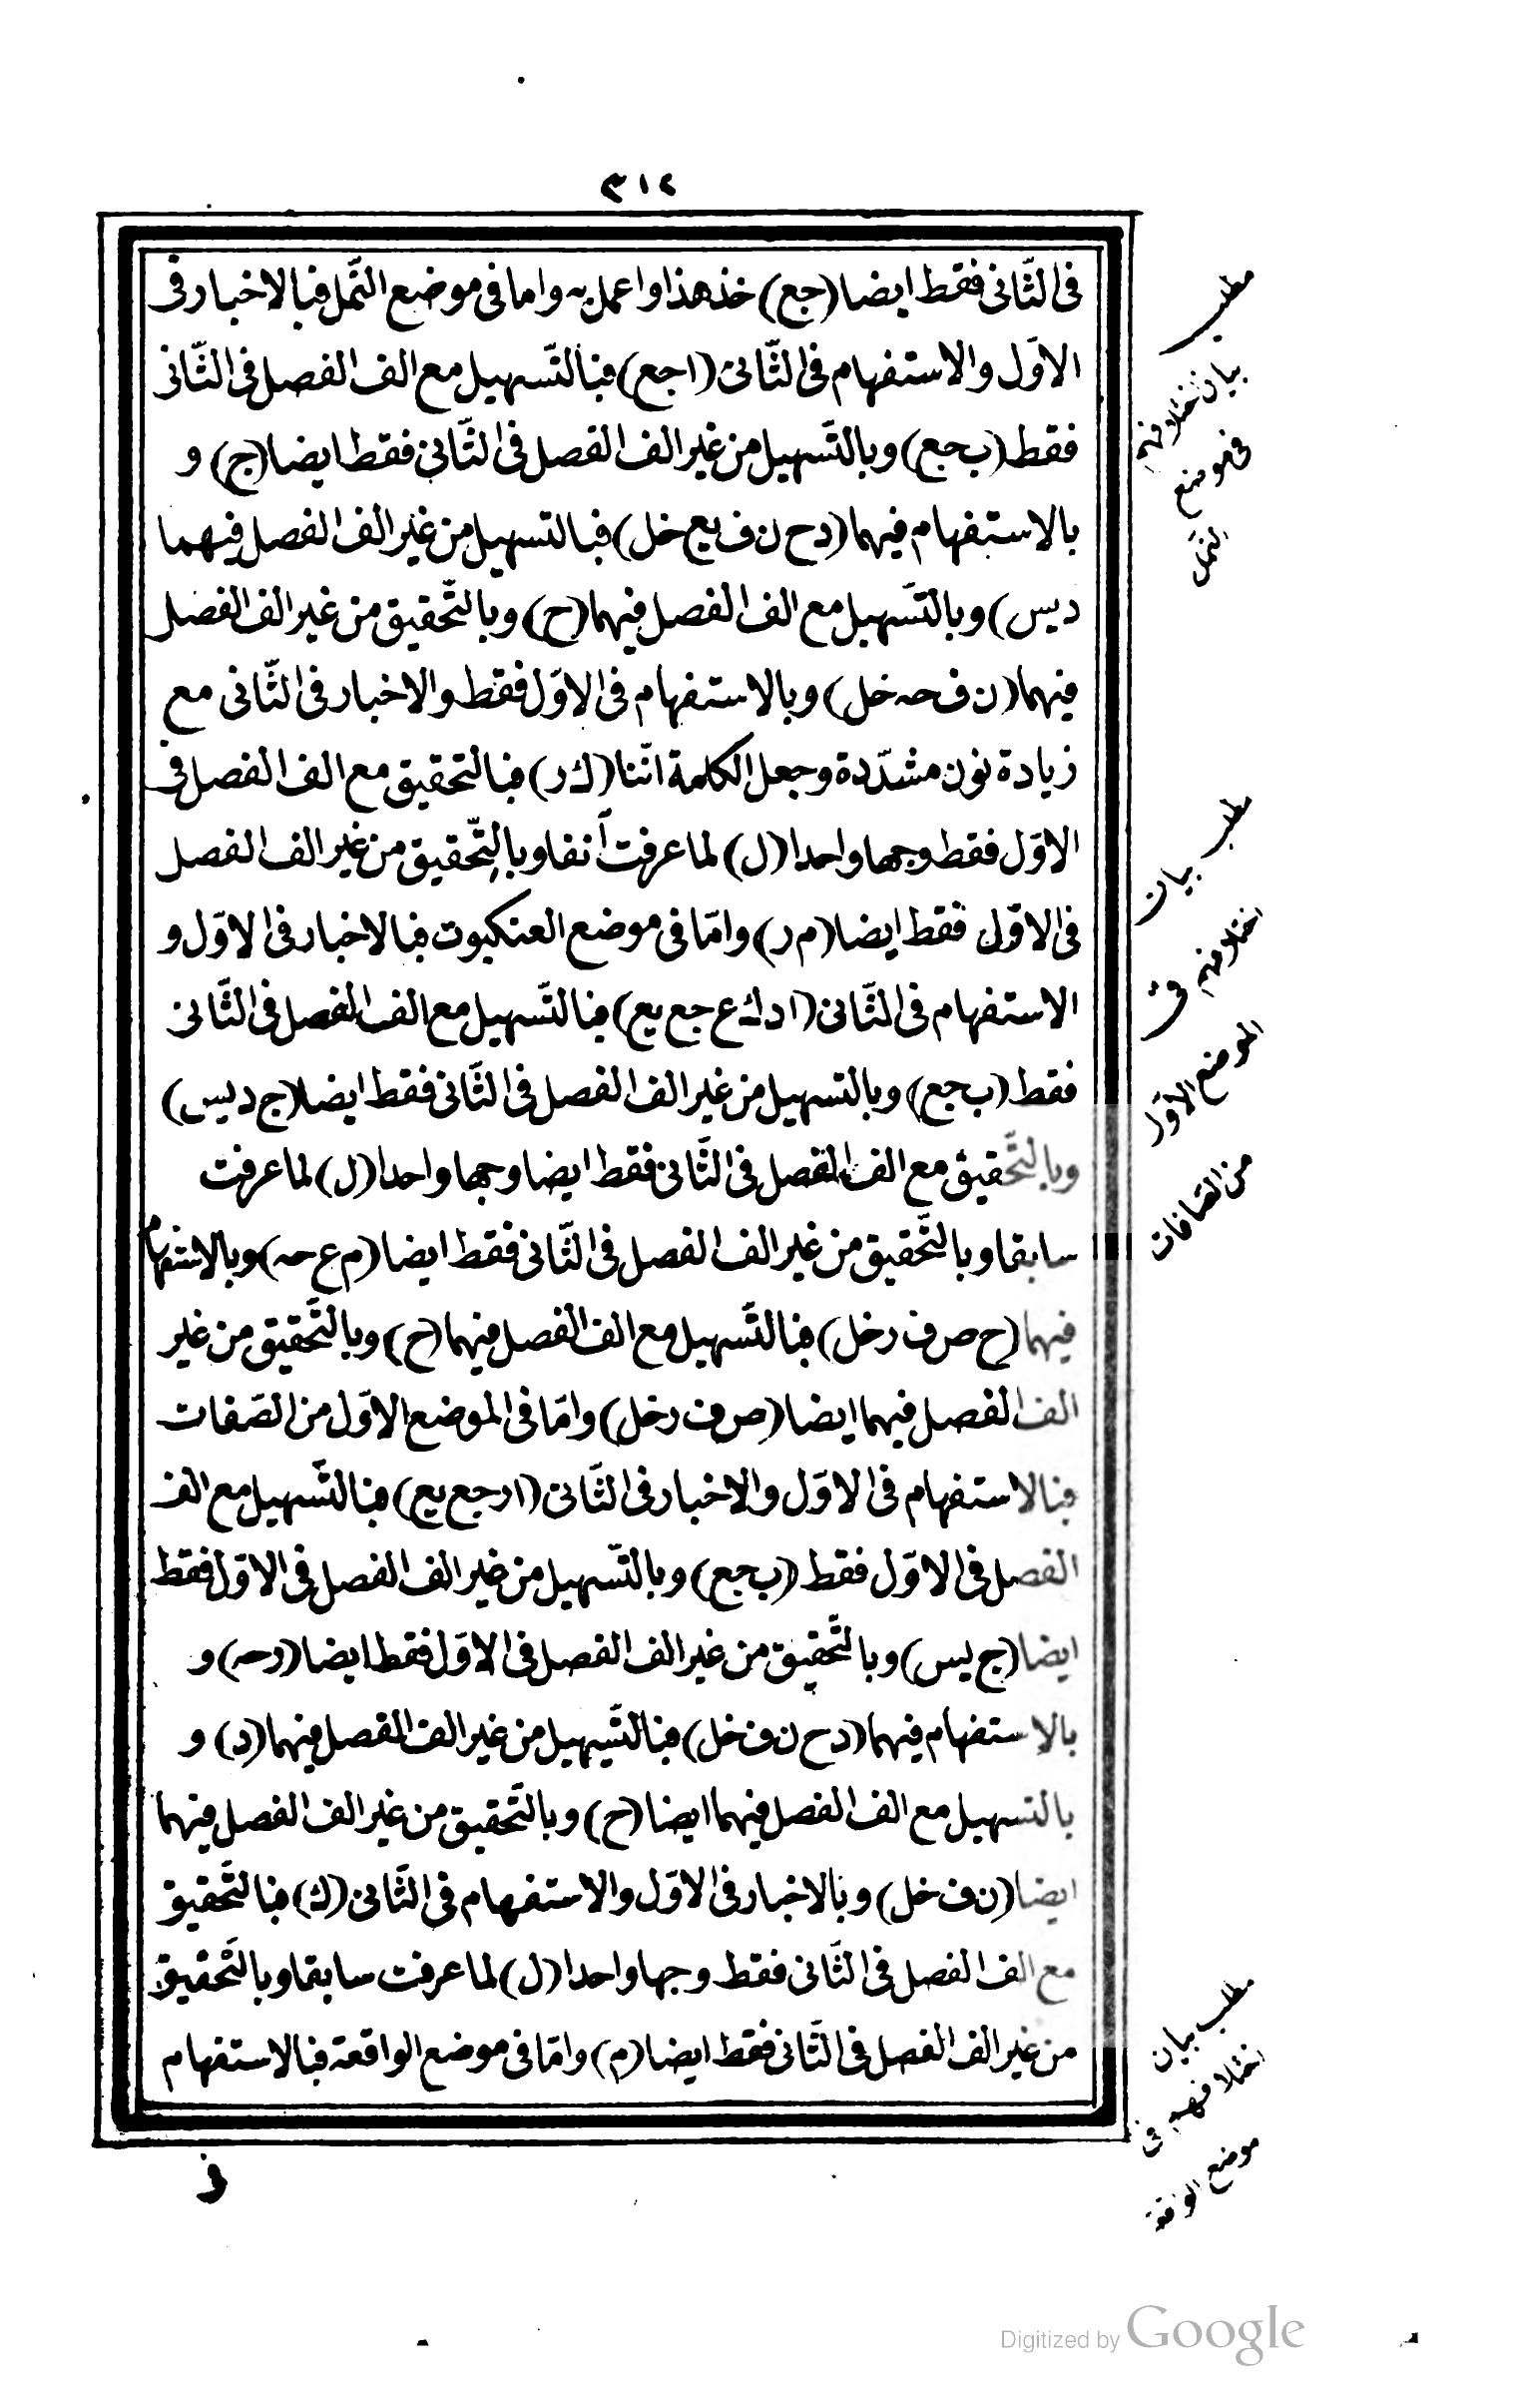 ٣١٢
فى الثّانى فقط ايضا (جع) خذ هذا واعمل به واما فى موضع النّمل فبالاخبار فى
الاوّل والاستفهام فى الثّانى (اجع) فبالتّسهيل مع الف الفصل فى الثّانى
فقط (ب جع) وبالتّسهيل من غير الف الفصل فى الثّانى فقط ايضا (ج) و
بالاستفهام فيهما (دح ن ف يع خل) فبالتسهيل من غير الف الفصل فيهما
ديس) وبالتّسهيل مع الف الفصل فيهما (ح) وبالتّحقيق من غير الف الفصل
فيهما (ن ف حه خل) وبالاستفهام فى الاوّل فقط والاخبار فى الثّانى مع
زيادة نون مشدّدة وجعل الكلمة انّنا (ك ر) فبالتحقيق مع الف الفصل فى
الاوّل فقط وجها واحدا (ل) لما عرفت آنفا وبالتّحقيق من غير الف الفصل
فى الاوّل فقط ايضا (م ر) وامّا فى موضع العنكبوت فبالاخبار فى الاوّل و
الاستفهام فى الثّانى (ا د ك ع جع يع) فبالتّسهيل مع الف الفصل فى الثّانى
فقط (ب جع) وبالتسهيل من غير الف الفصل فى الثّانى فقط ايضا (ج ديس)
وبالتّحقيق مع الف الفصل فى الثّانى فقط ايضا وجها واحدا (ل) لما عرفت
سابقا وبالتّحقيق من غير الف الفصل فى الثّانى فقط ايضا (م ع حه) وبالاستفهام
فيهما (ح ص ف ر خل) فبالتّسهيل مع الف الفصل فيهما (ح) وبالتّحقيق من غير
الف الفصل فيهما ايضا (ص ف ر خل) وامّا فى الموضع الاوّل من الصّفات
فبالاستفهام فى الاوّل والاخبار فى الثّانى (ا ر جع يع) فبالتّسهيل مع الف
الفصل فى الاوّل فقط (ب جع) وبالتّسهيل من غير الف الفصل فى الاوّل فقط
ايضا (ج يس) وبالتّحقيق من غير الف الفصل فى الاوّل فقط ايضا (ر حه) و
بالاستفهام فيهما (دح ن ف خل) فبالتّسهيل من غير الف الفصل فيهما (د) و
بالتسهيل مع الف الفصل فيهما ايضا (ح) وبالتّحقيق من غير الف الفصل فيهما
ايضا (ن ف خل) وبالاخبار فى الاوّل والاستفهام فى الثّانى (ك) فبالتّحقيق
مع الف الفصل فى الثّانى فقط وجها واحدا (ل) لما عرفت سابقا وبالتّحقيق
من غير الف الفصل فى الثّانى فقط ايضا (م) وامّا فى موضع الواقعة فبالاستفهام
ف
مطلب
بيان اختلافهم
فى موضع
النمل
مطلب بيان
اختلافهم فى
الموضع الاوّل
من الصّافات
مطلب بيان
اختلافهم فى
موضع الواقعة
Digitized by Google